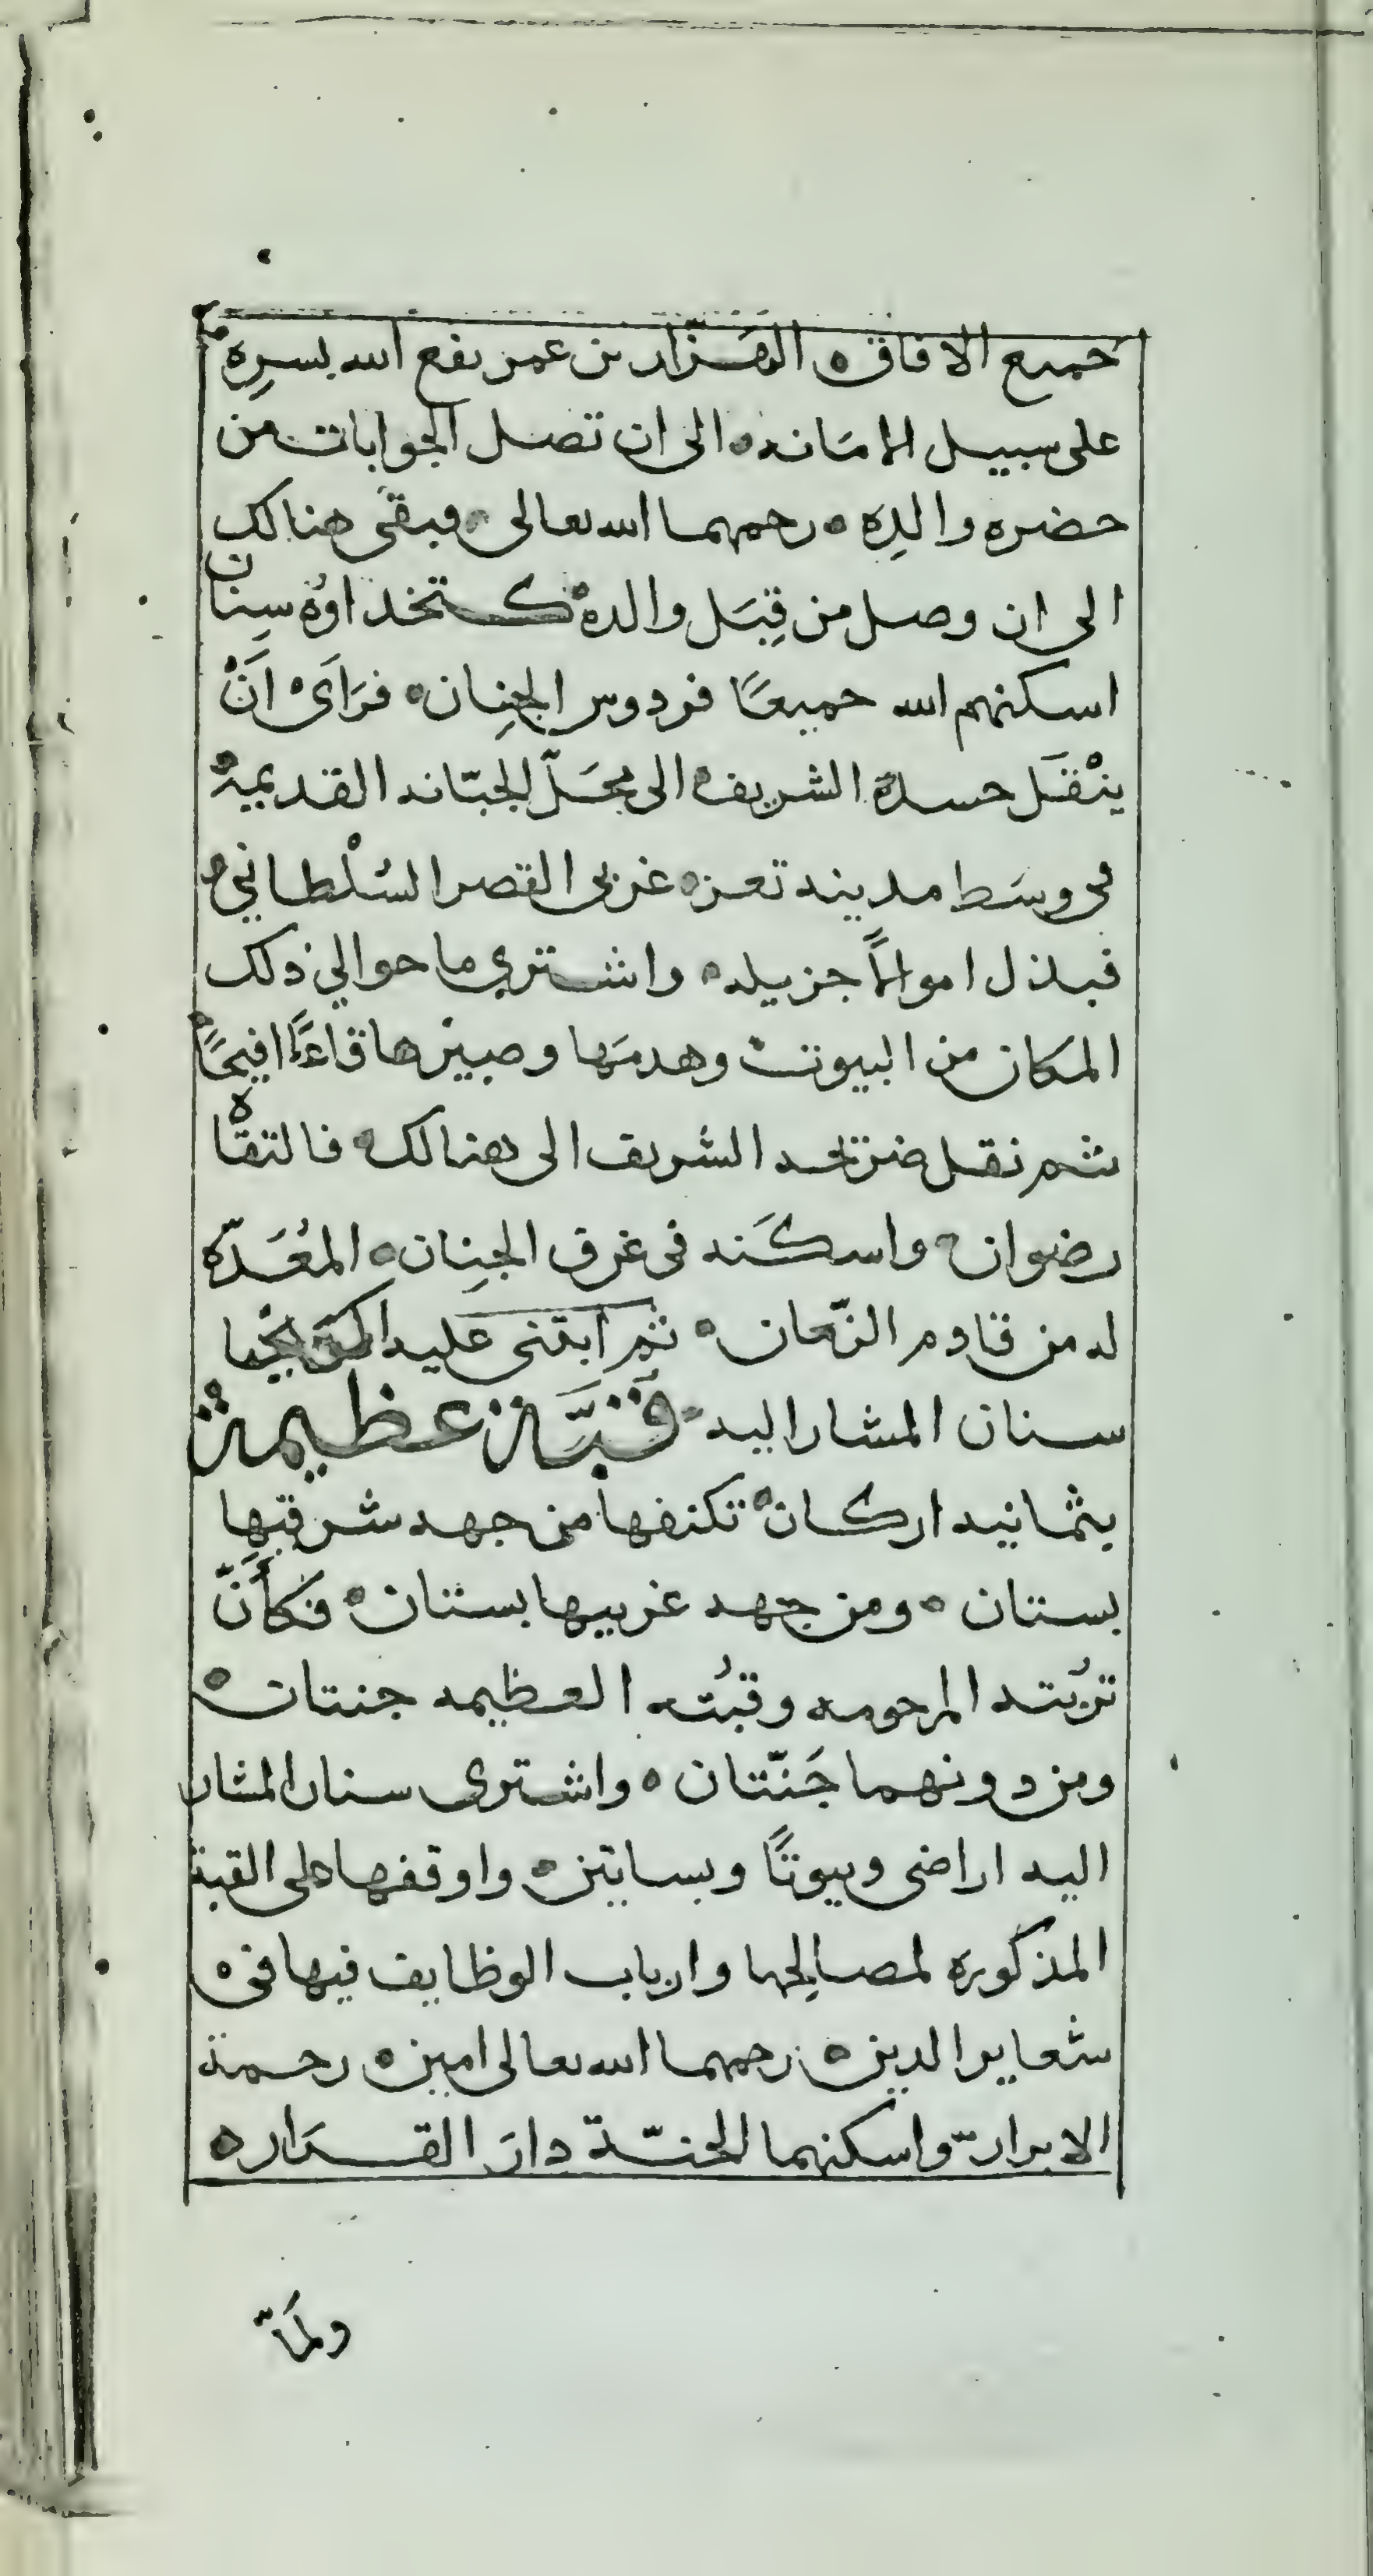 جميع الافاق ه الهَزّار بن عمر نفع الله بسرِه
على سبيل الامَانه ه الى ان تصل الجوابات من
حضره والدِه ه رحمهما الله تعالى ه فبقى هنالك
الى ان وصل من قِبَل والده كتخداوُه سِنان
اسكنهم الله جميعًا فردوس الجِنان ه فرَاَى اَنْ
ينْقَل جسده الشريف ه الى محَلّ الجبّانه القديميه
فى وسَط مدينه تعز ه غربى القصر السُلْطاني ه
فبذل اموالاً جزيله ه واشترى ما حوالي ذلك
المكان من البيوت وهدمَها وصيّرها قاعًا افيحًا
ثم نقل ضريحه الشريف الى هنالك ه فالتقاه
رضوان ه واسكَنه فى غرف الجِنان ه المُعَدّه
له من قادم الزّمان ه ثم ابتنى عليه
سنان المشار اليه قُبَّةً عظيمةً
بثمانيه اركان ه تكنفها من جهه شرقيّها
بستان ه ومن جهه غربيها بستان ه فكأَنّ
تربُته المرحومه وقبُته العظيمه جنتان ه
ومن دونهما جَنّتان ه واشترى سنان المشار
اليه اراضى وبيوتًا وبساتين ه واوقفها على القبة
المذكوره لمصالِحها وارباب الوظايف فيها فى ه
شعاير الدين ه رحمهما الله تعالى امين ه رحمة
الابرار ه واسكنهما الجنّة دارَ القَرَار ه
ولمّا